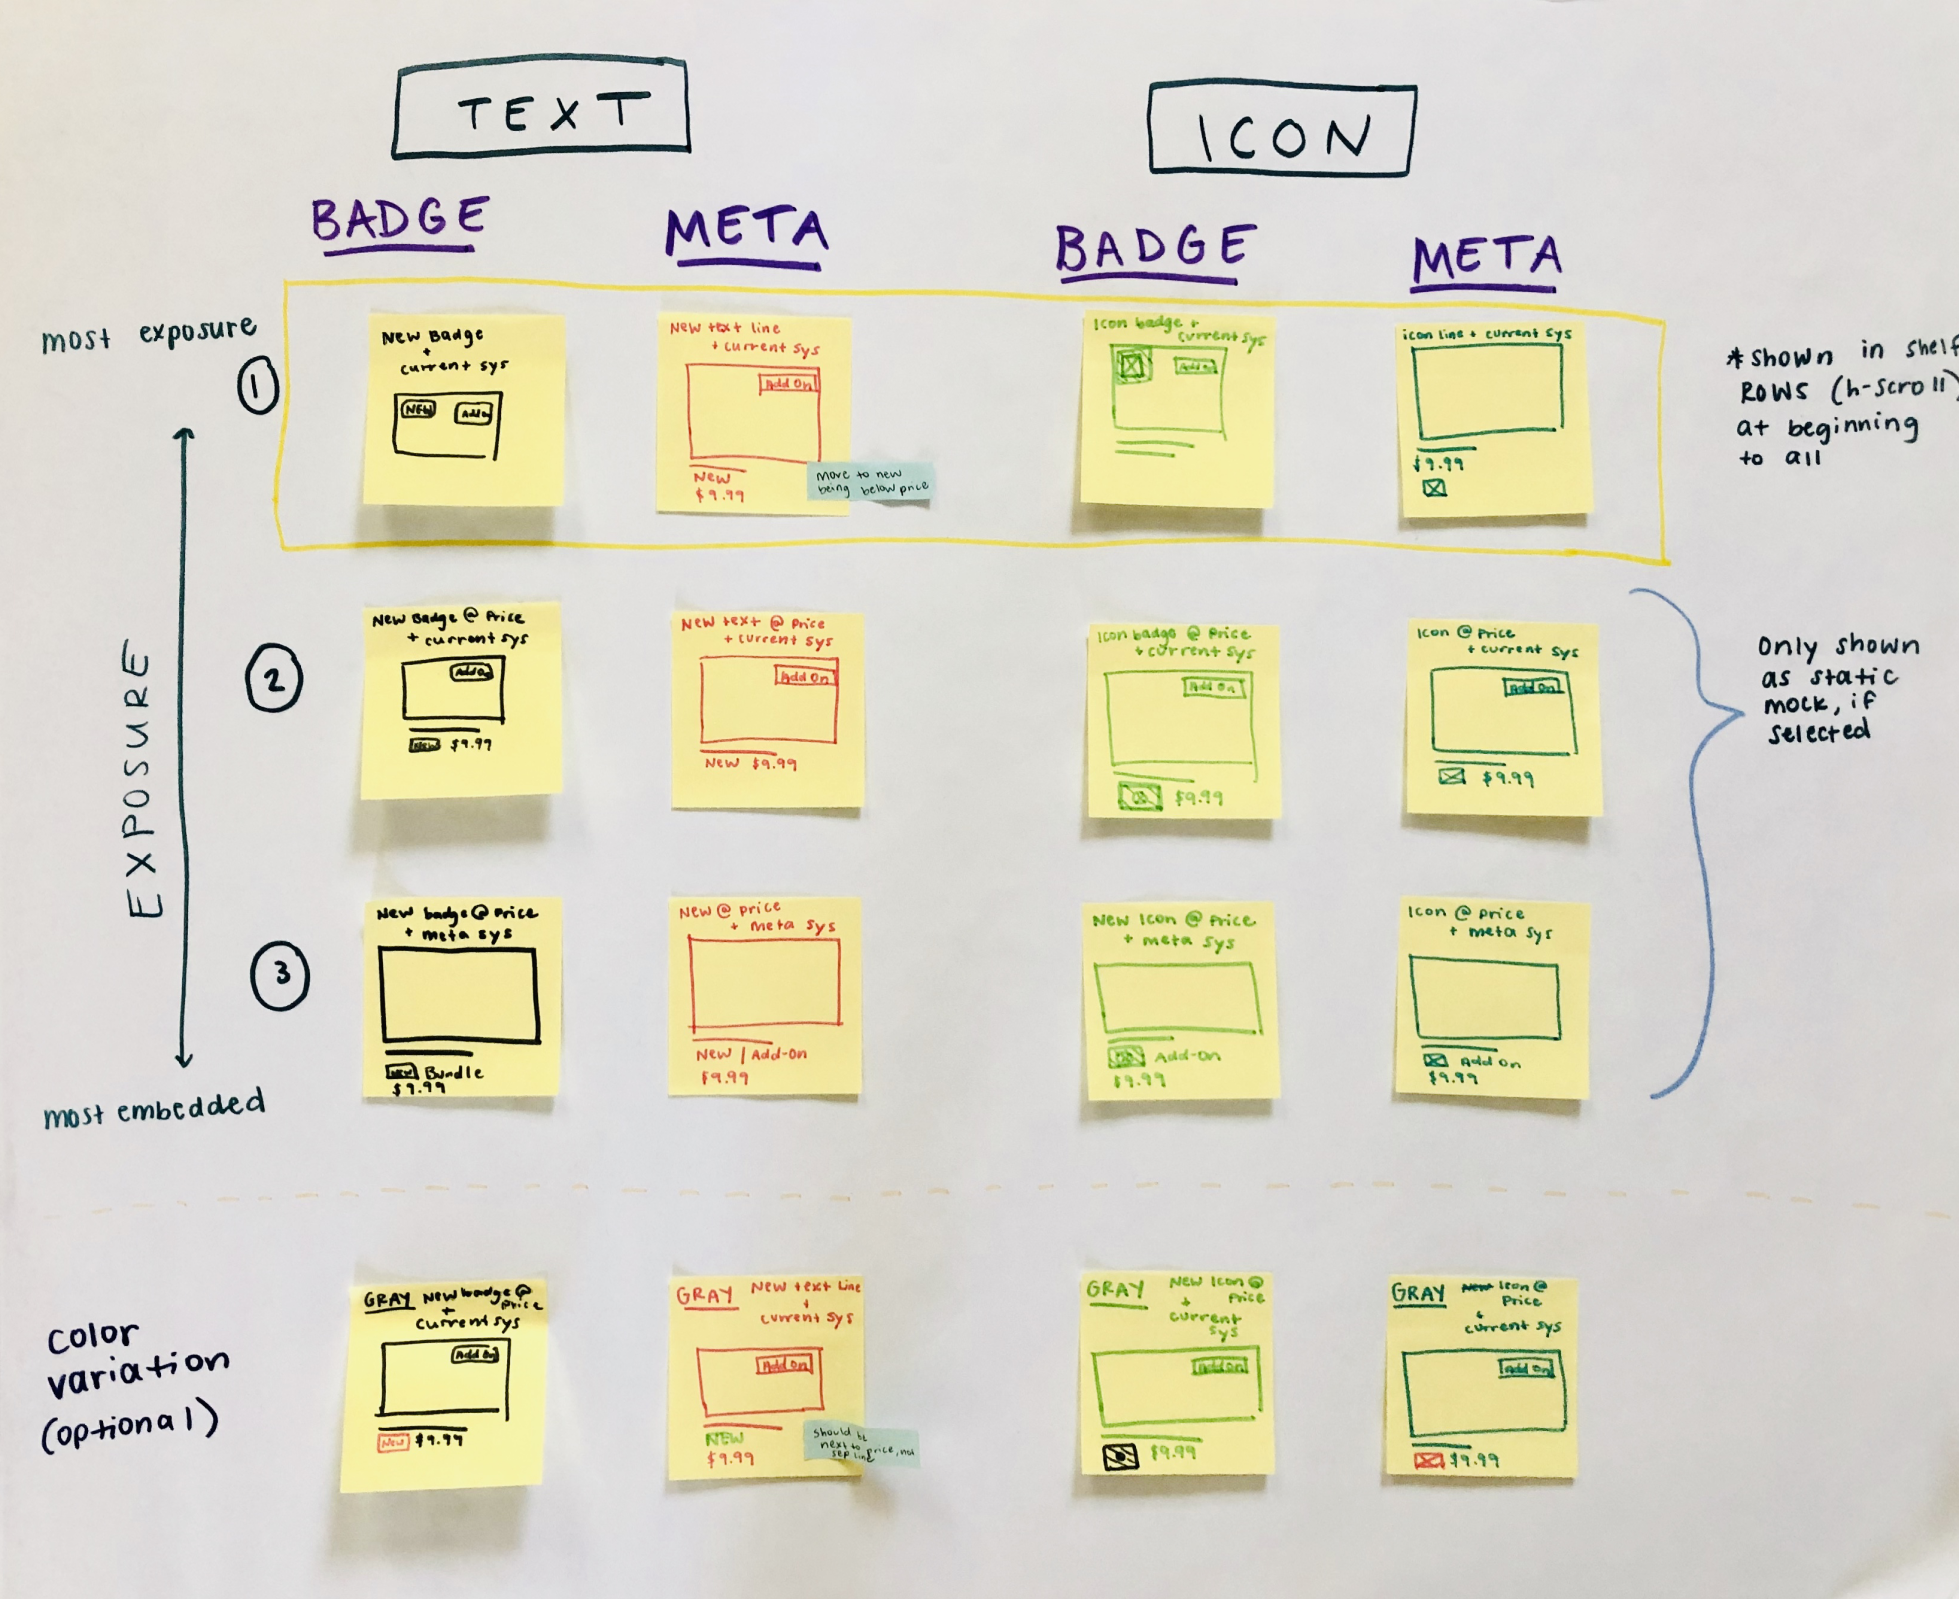 TEXT
ICON
BADGE
META
BADGE
META
most exposure
1
EXPOSURE
most embedded
New Badge
+
current sys
NEW
Add On
New text line
+ current sys
Add On
New
$9.99
move to new
being below price
Icon badge +
current sys
Add On
icon line + current sys
$9.99
*shown in shelf
ROWS (h-scroll)
at beginning
to all
2
New Badge @ Price
+ current sys
Add On
NEW $9.99
New text @ Price
+ current sys
Add On
New $9.99
Icon badge @ Price
+ current sys
Add On
$9.99
Icon @ Price
+ current sys
Add On
$9.99
Only shown
as static
mock, if
selected
3
New badge @ Price
+ meta sys
NEW Bundle
$9.99
New @ price
+ meta sys
New | Add-On
$9.99
New Icon @ Price
+ meta sys
Add-On
$9.99
Icon @ price
+ meta sys
Add On
$9.99
color
variation
(optional)
GRAY New badge @
Price
+
current sys
Add On
New $9.99
GRAY New text Line
+
current sys
Add On
NEW
$9.99
should be
next to price, not
sep line
GRAY New Icon @
Price
+
current
sys
Add On
$9.99
GRAY New Icon @
Price
+
current sys
Add On
$9.99